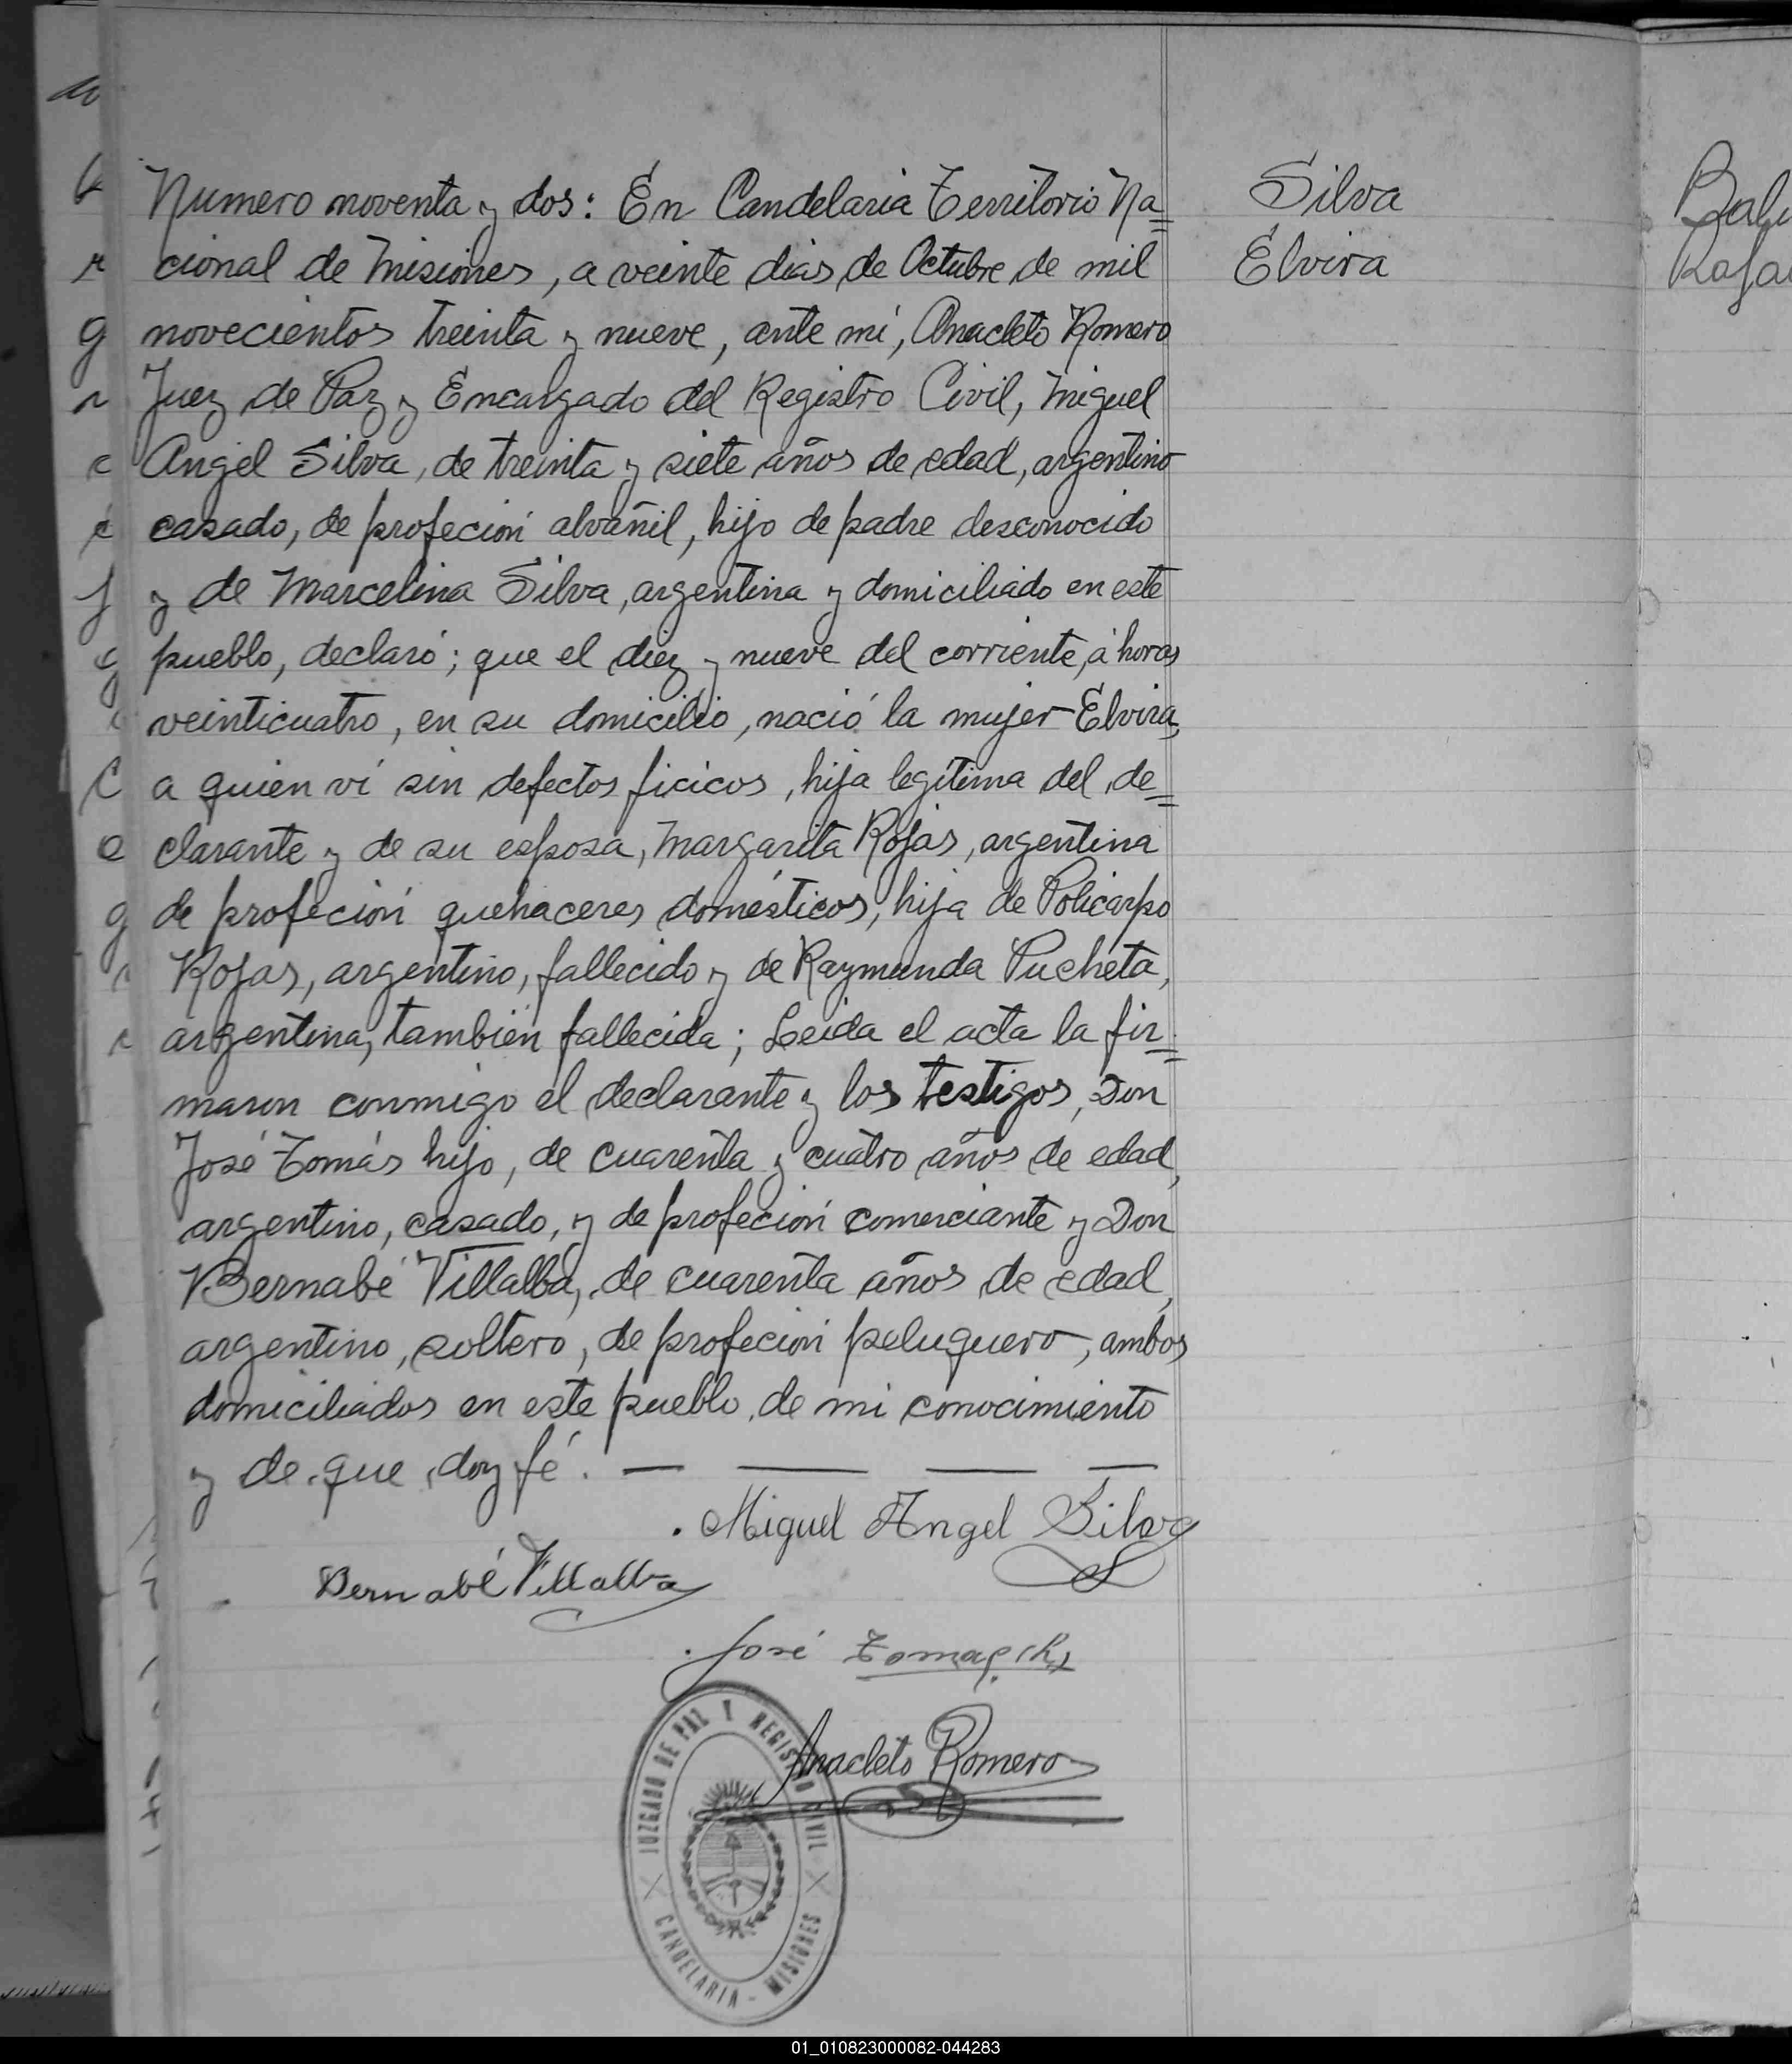 Numero noventa y dos: En Candelaria Territorio Na=
cional de Misiones, a veinte dias de Octubre de mil
novecientos treinta y nueve, ante mi, Anacleto Romero
Juez de Paz y Encargado del Registro Civil, Miguel
Angel Silva, de treinta y siete años de edad, argentino
casado, de profeción alvañil, hijo de padre desconocido
y de Marcelina Silva, argentina y domiciliado en este
pueblo, declaró; que el diez y nueve del corriente, á horas
veinticuatro, en su domicilio, nació la mujer Elvira,
a quien ví sin defectos ficicos, hija legítima del de=
clarante y de su esposa, Margarita Rojas, argentina
de profeción quehaceres domésticos, hija de Policarpo
Rojas, argentino, fallecido y de Raymunda Pucheta,
argentina, también fallecida; Leida el acta la fir=
maron conmigo el declarante y los testigos, Don
José Tomás hijo, de cuarenta y cuatro años de edad,
argentino, casado, y de profeción comerciante y Don
Bernabé Villalba, de cuarenta años de edad,
argentino, soltero, de profeción peluquero, ambos
domiciliados en este pueblo, de mi conocimiento
y de que doy fé.
Silva
Elvira
Miguel Angel Silva
Bernabé Villalba
José Tomas (h)
Anacleto Romero
JUZGADO DE PAZ Y REGISTRO CIVIL
CANDELARIA - MISIONES
01_010823000082-044283